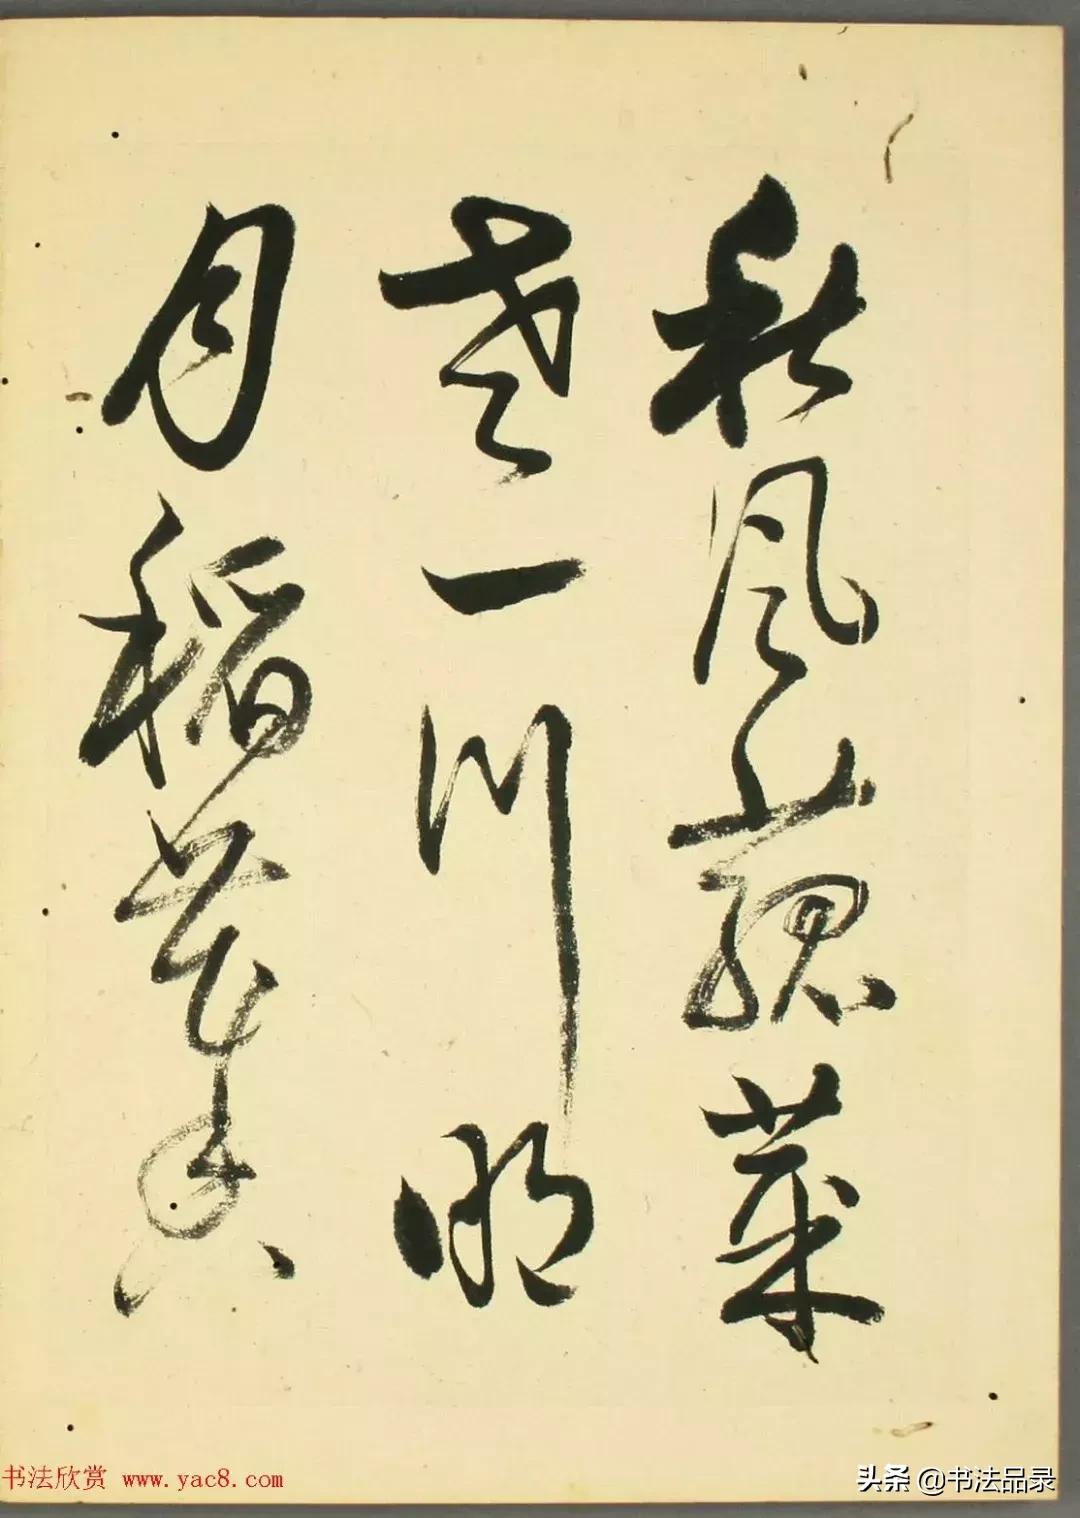 秋風葉
老一川明
月稻花香
书法欣赏 www.yac8.com
头条 @书法品录